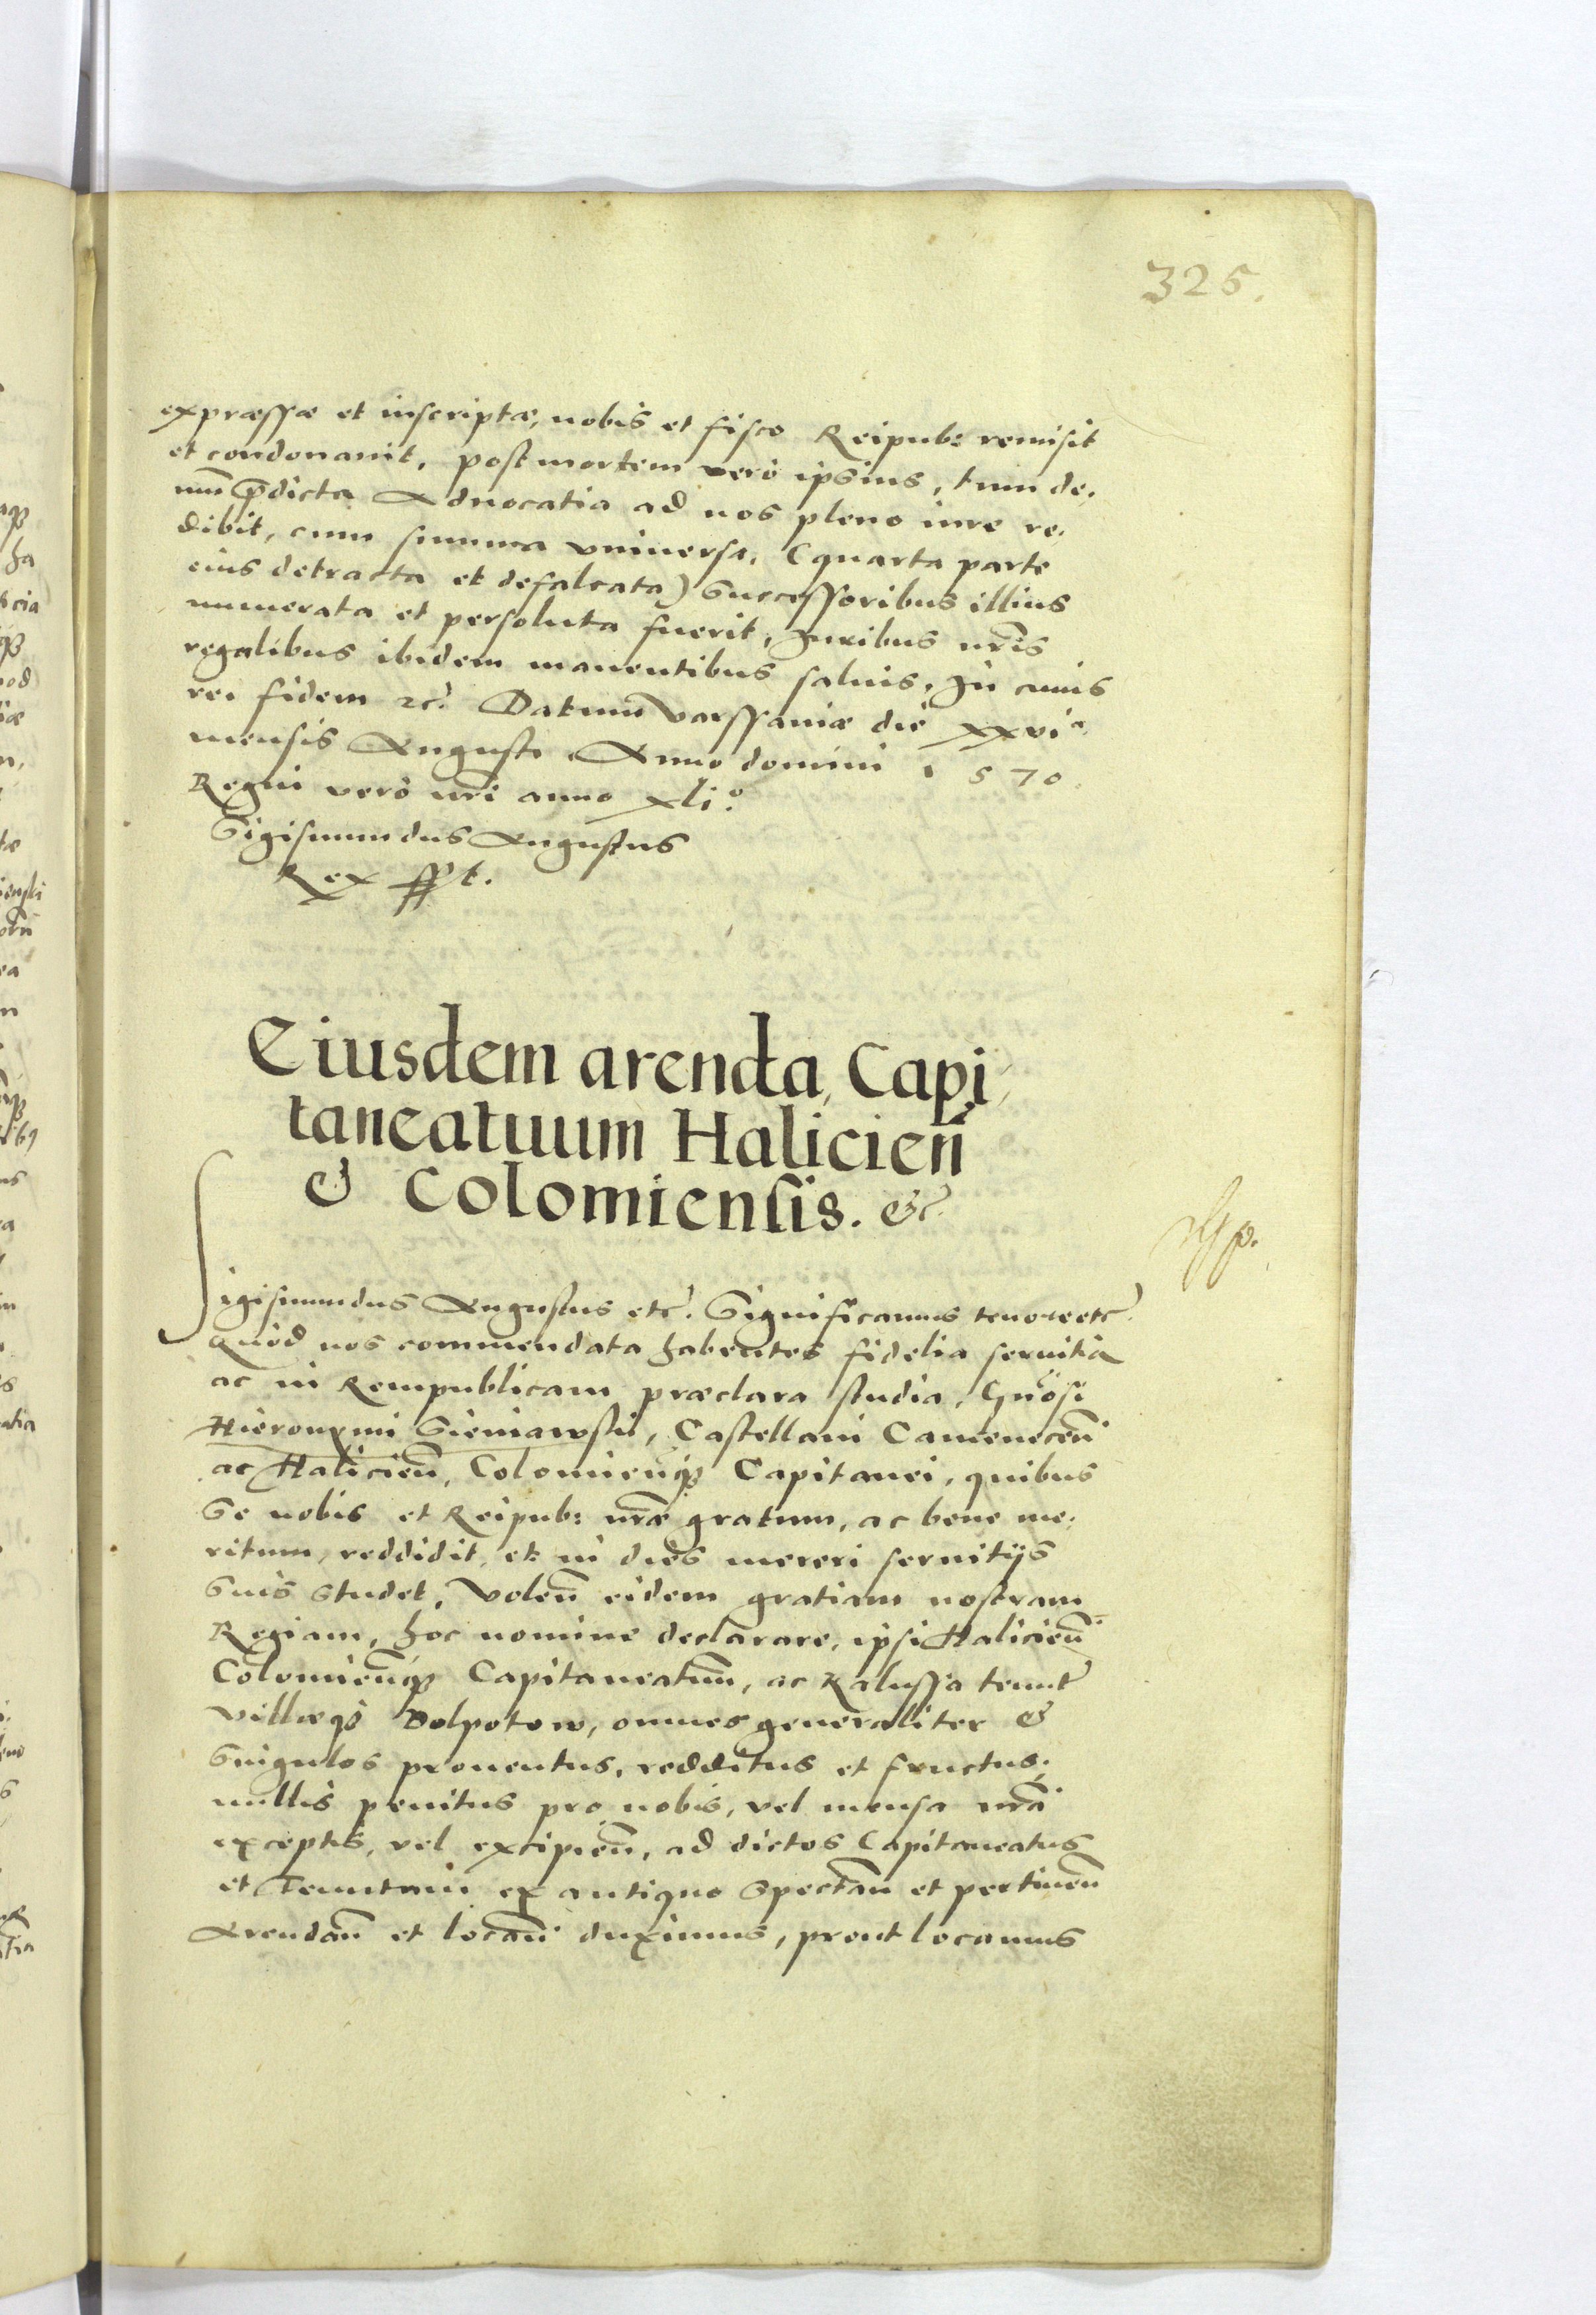 325.
expræssæ et inscriptæ, nobis et fisco Reipub: remisit
et condonauit, post mortem verò ipsius, tum de,
mũ p̃dicta Aduocatia ad nos pleno iure re,
dibit, cum summa vniuersa, (quarta parte
eius detracta et defalcata) Successoribus illius
numerata et persoluta fuerit, Juribus nr̃is
regalibus ibidem manentibus saluis, In cuius
rei fidem etc̃ Datum Varssauiæ die xxvi a
mensis Augusti Anno domini 1570.
Regni verò nr̃i anno xli o.
Sigismundus Augustus
Rex sspt.
Eiusdem arenda, Capi,
taneatuum Halicien̄
& Colomiensis. &c̃
Sigismundus Augustus etc̃. Significamus tenore etc̃.
Quod nos commendata habentes fidelia seruitia
ac in Rempublicam præclara studia, Gn̄osi
Hieronymi Sieniawski, Castellani Camenecen̄
ac Halicien̄, Colomien̄q3 Capitanei, quibus
Se nobis et Reipub: nr̃æ gratum, ac bene me,
ritum, reddidit, et in dies mereri seruitijs
Suis studet, Volen̄ eidem gratiam nostram
Regiam, hoc nomine declarare, ipsi Halicien̄
Colomien̄q3 Capitaneatum̄, ac Kalussa tenut̃
villæq3 Dolpotow, omnes generaliter &
Singulos prouentus, redditus et fructus,
nullis penitus pro nobis, vel mensa nr̃a
exceptis, vel excipien̄, ad dictos Capitaneatus
et Tenutam ex antiquo Spectan̄ et pertinen̄
Arendan̄ et locan̄ duximus, prout locamus